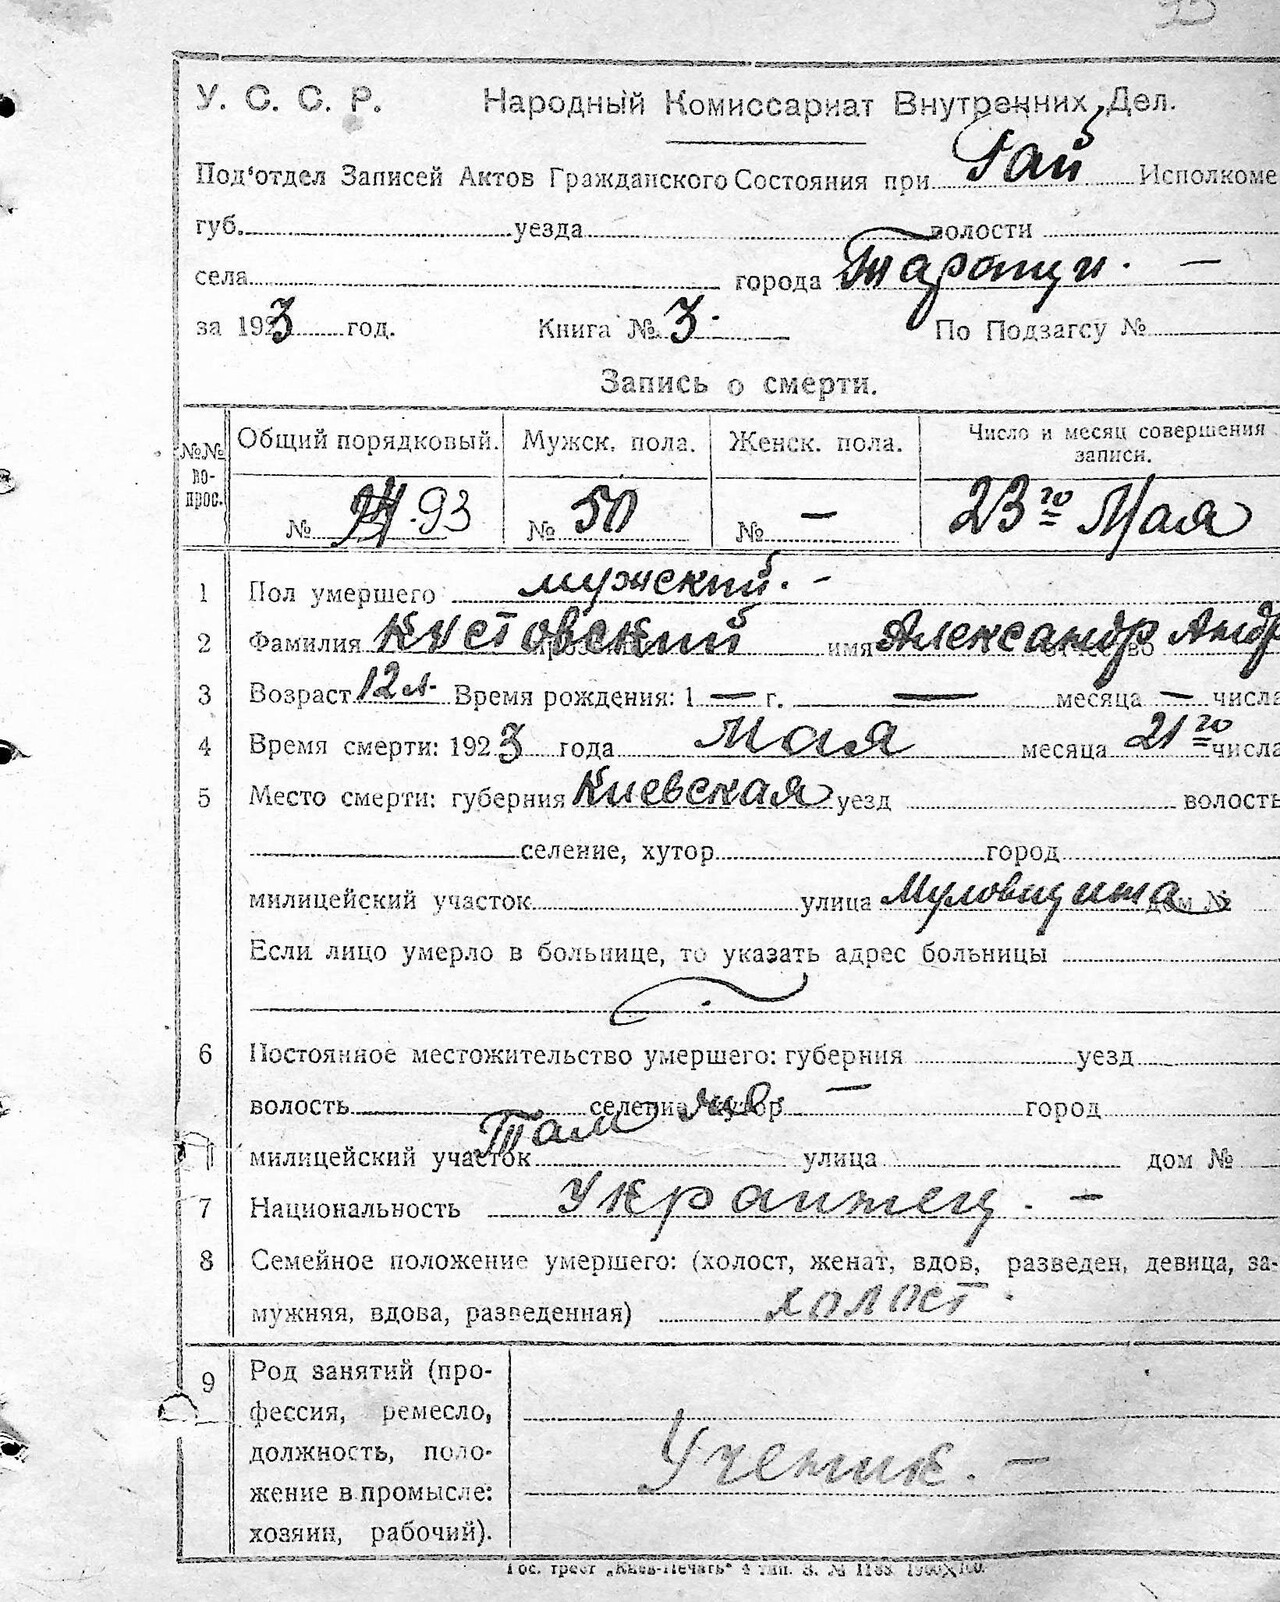 У. С. С. Р. Народный Комиссариат Внутренних Дел.
Под'отдел Записей Актов Гражданского Состояния при Рай Исполкоме
губ. уезда волости
села города Таращи. —
за 1923 год. Книга № 3. По Подзагсу №
Запись о смерти.
№№ во-прос. Общий порядковый. Мужск. пола. Женск. пола. Число и месяц совершения записи.
№ 93 № 50 № — 23го Мая
1 Пол умершего мужский. —
2 Фамилия Кустовский имя Александр Андр
3 Возраст 12 л. Время рождения: 1 — г. — месяца — числа
4 Время смерти: 1923 года Мая месяца 21го числа
5 Место смерти: губерния Киевская уезд волость
селение, хутор город
милицейский участок улица дом №
Если лицо умерло в больнице, то указать адрес больницы
6 Постоянное местожительство умершего: губерния уезд
волость селение, хутор — город
Там же.
милицейский участок улица дом №
7 Национальность Украинец. —
8 Семейное положение умершего: (холост, женат, вдов, разведен, девица, за-
мужняя, вдова, разведенная) холост.
9 Род занятий (про-
фессия, ремесло,
должность, поло-
жение в промысле:
хозяин, рабочий).
Ученик. —
Гос. трест „Киев-Печать" 4 тип. З. № 1188.